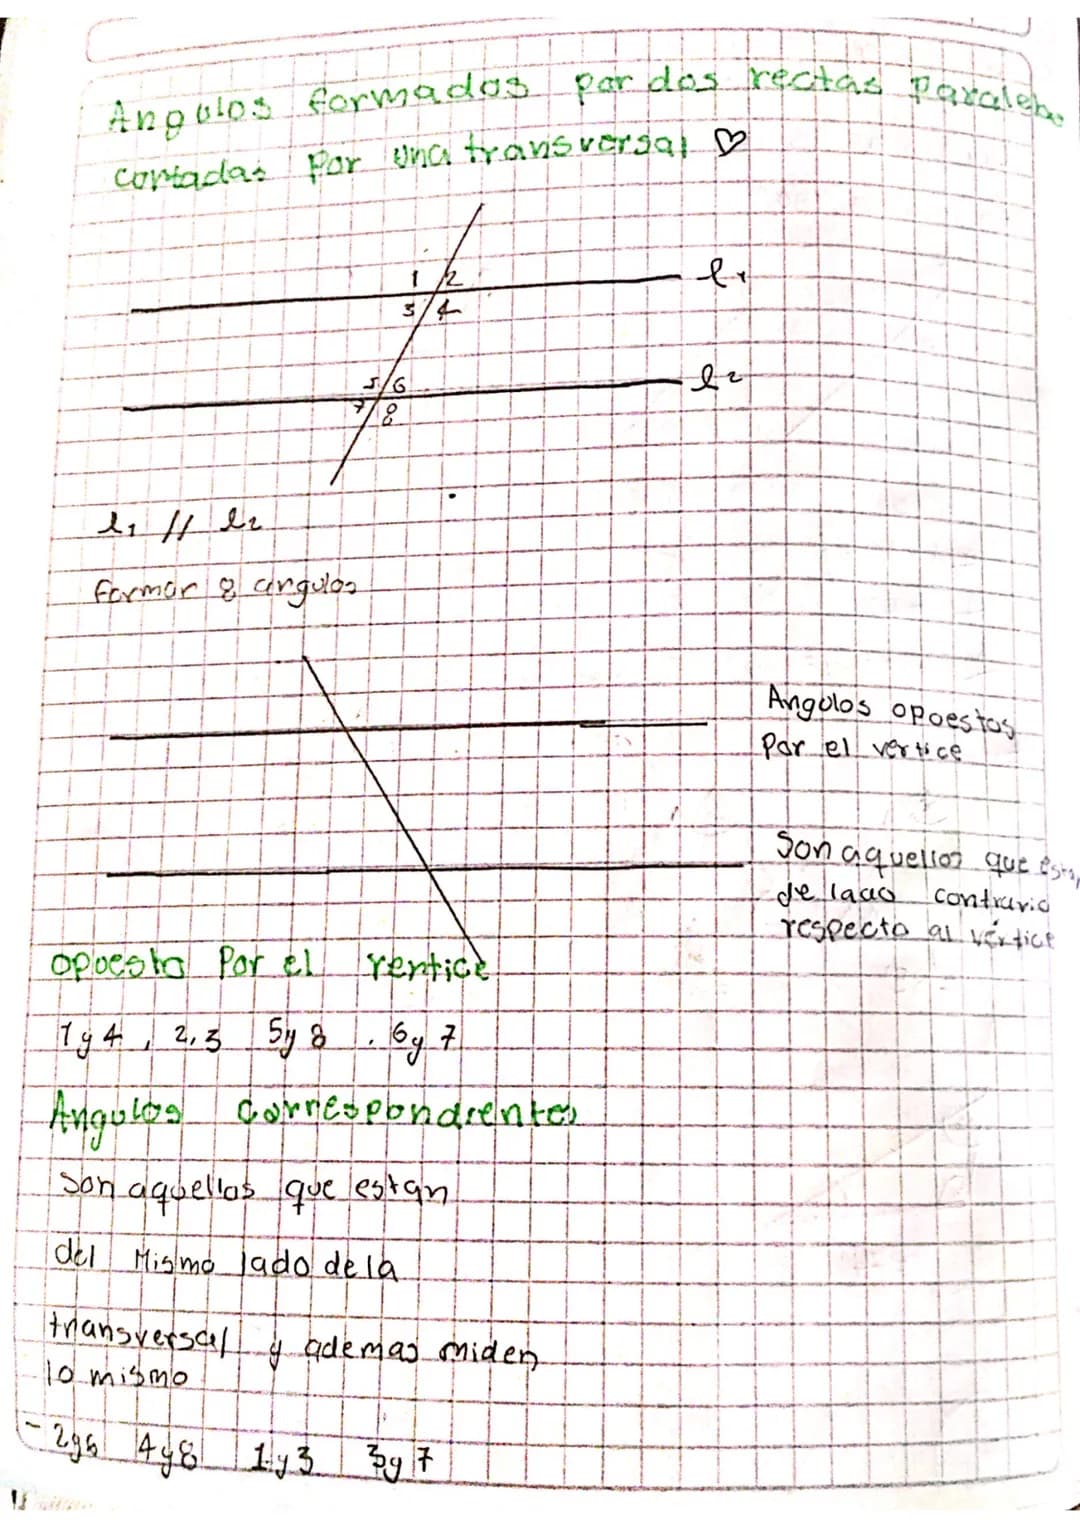 Angulos formados por dos rectas Paralelas
cortadas por una transversal ♡
1 2
l1
3 4
5 6
l2
7 8
l1 // l2
formar 8 angulos
Angulos opuestos
Por el vertice
Son aquellos que estan
de lado contrario
respecto al vértice
opuesto Por el vertice
1 y 4, 2,3 5y 8. 6y 7
Angulos Correspondientes
Son aquellos que estan
del Mismo lado de la
transversal y ademas miden
lo mismo
- 2y6 4y8 1y3 3y7